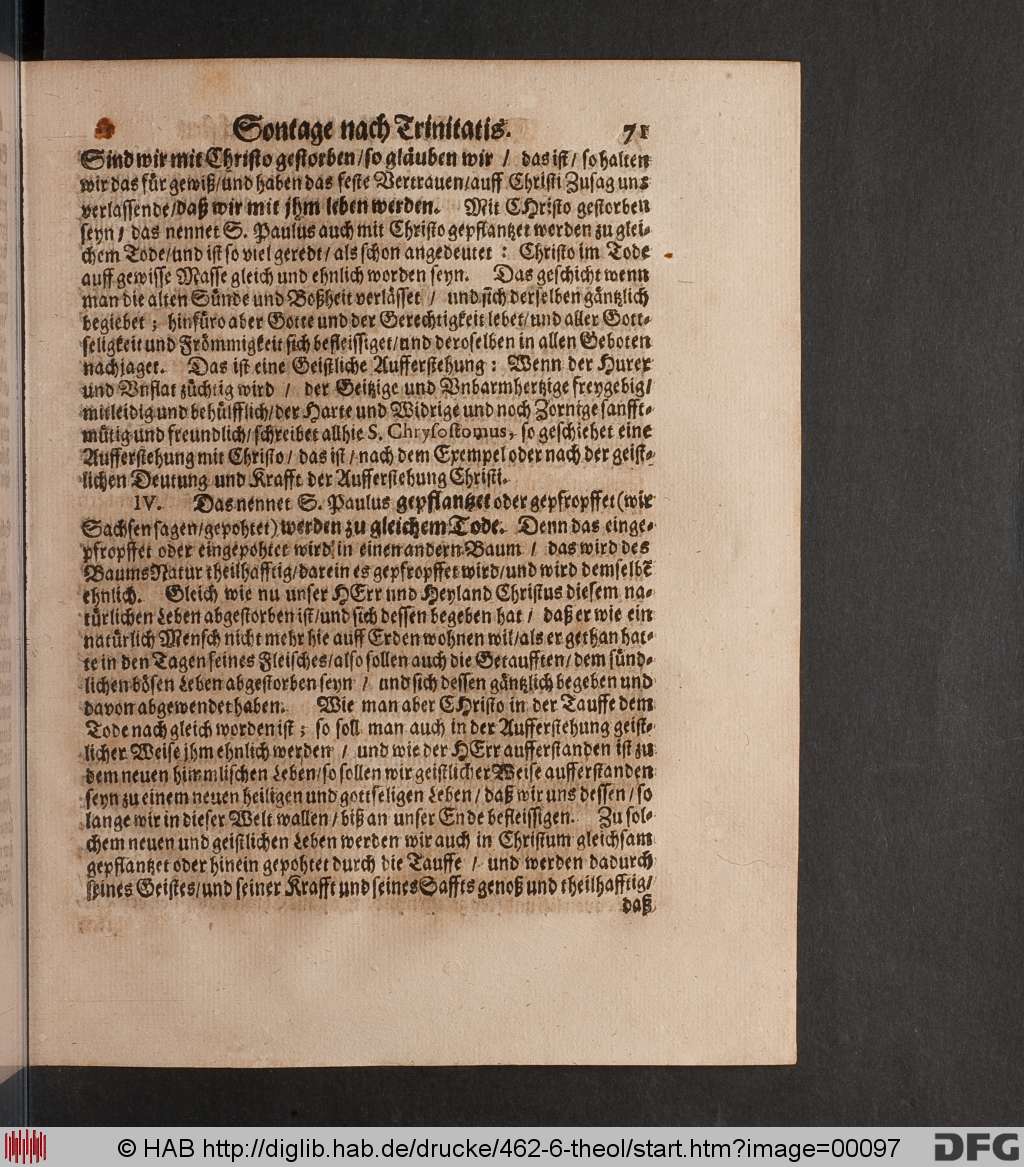 Sontage nach Trinitatis. 71
Sind wir mit Christo gestorben/so gläuben wir / das ist/ so halten
wir das für gewiß/und haben das feste Vertrauen/auff Christi Zusag uns
verlassende/daß wir mit jhm leben werden. Mit CHristo gestorben
seyn / das nennet S. Paulus auch mit Christo gepflantzet werden zu glei-
chem Tode/und ist so viel geredt/ als schon angedeutet : Christo im Tode
auff gewisse Masse gleich und ehnlich worden seyn. Das geschicht wenn
man die alten Sünde und Boßheit verlässet / und sich derselben gäntzlich
begiebet ; hinfüro aber Gotte und der Gerechtigkeit lebet/und aller Gott-
seligkeit und Frömmigkeit sich befleissiget/und deroselben in allen Geboten
nachjaget. Das ist eine Geistliche Aufferstehung : Wenn der Hurer
und Vnflat züchtig wird / der Geitzige und Vnbarmhertzige freygebig/
mitleidig und behülfflich/der Harte und Widrige und noch Zornige sanfft-
mütig und freundlich/schreibet allhie S. Chrysostomus, so geschiehet eine
Aufferstehung mit Christo/ das ist/nach dem Exempel oder nach der geist-
lichen Deutung und Krafft der Aufferstehung Christi.
IV. Das nennet S. Paulus gepflantzet oder gepfropffet (wir
Sachsen sagen/gepohtet) werden zu gleichem Tode. Denn das einge-
pfropffet oder eingepohtet wird in einen andern Baum / das wird des
Baums Natur theilhafftig/darein es gepfropffet wird/und wird demselbē
ehnlich. Gleich wie nu unser HErr und Heyland Christus diesem na-
türlichen Leben abgestorben ist/und sich dessen begeben hat / daß er wie ein
natürlich Mensch nicht mehr hie auff Erden wohnen wil/als er gethan hat-
te in den Tagen seines Fleisches/also sollen auch die Getaufften/dem sünd-
lichen bösen Leben abgestorben seyn / und sich dessen gäntzlich begeben und
davon abgewendet haben. Wie man aber CHristo in der Tauffe dem
Tode nach gleich worden ist ; so soll man auch in der Aufferstehung geist-
licher Weise jhm ehnlich werden / und wie der HErr aufferstanden ist zu
dem neuen himmlischen Leben/so sollen wir geistlicher Weise aufferstanden
seyn zu einem neuen heiligen und gottseligen Leben / daß wir uns dessen / so
lange wir in dieser Welt wallen / biß an unser Ende befleissigen. Zu sol-
chem neuen und geistlichen Leben werden wir auch in Christum gleichsam
gepflantzet oder hinein gepohtet durch die Tauffe / und werden dadurch
seines Geistes/und seiner Krafft und seines Saffts genoß und theilhafftig/
daß
© HAB http://diglib.hab.de/drucke/462-6-theol/start.htm?image=00097
DFG